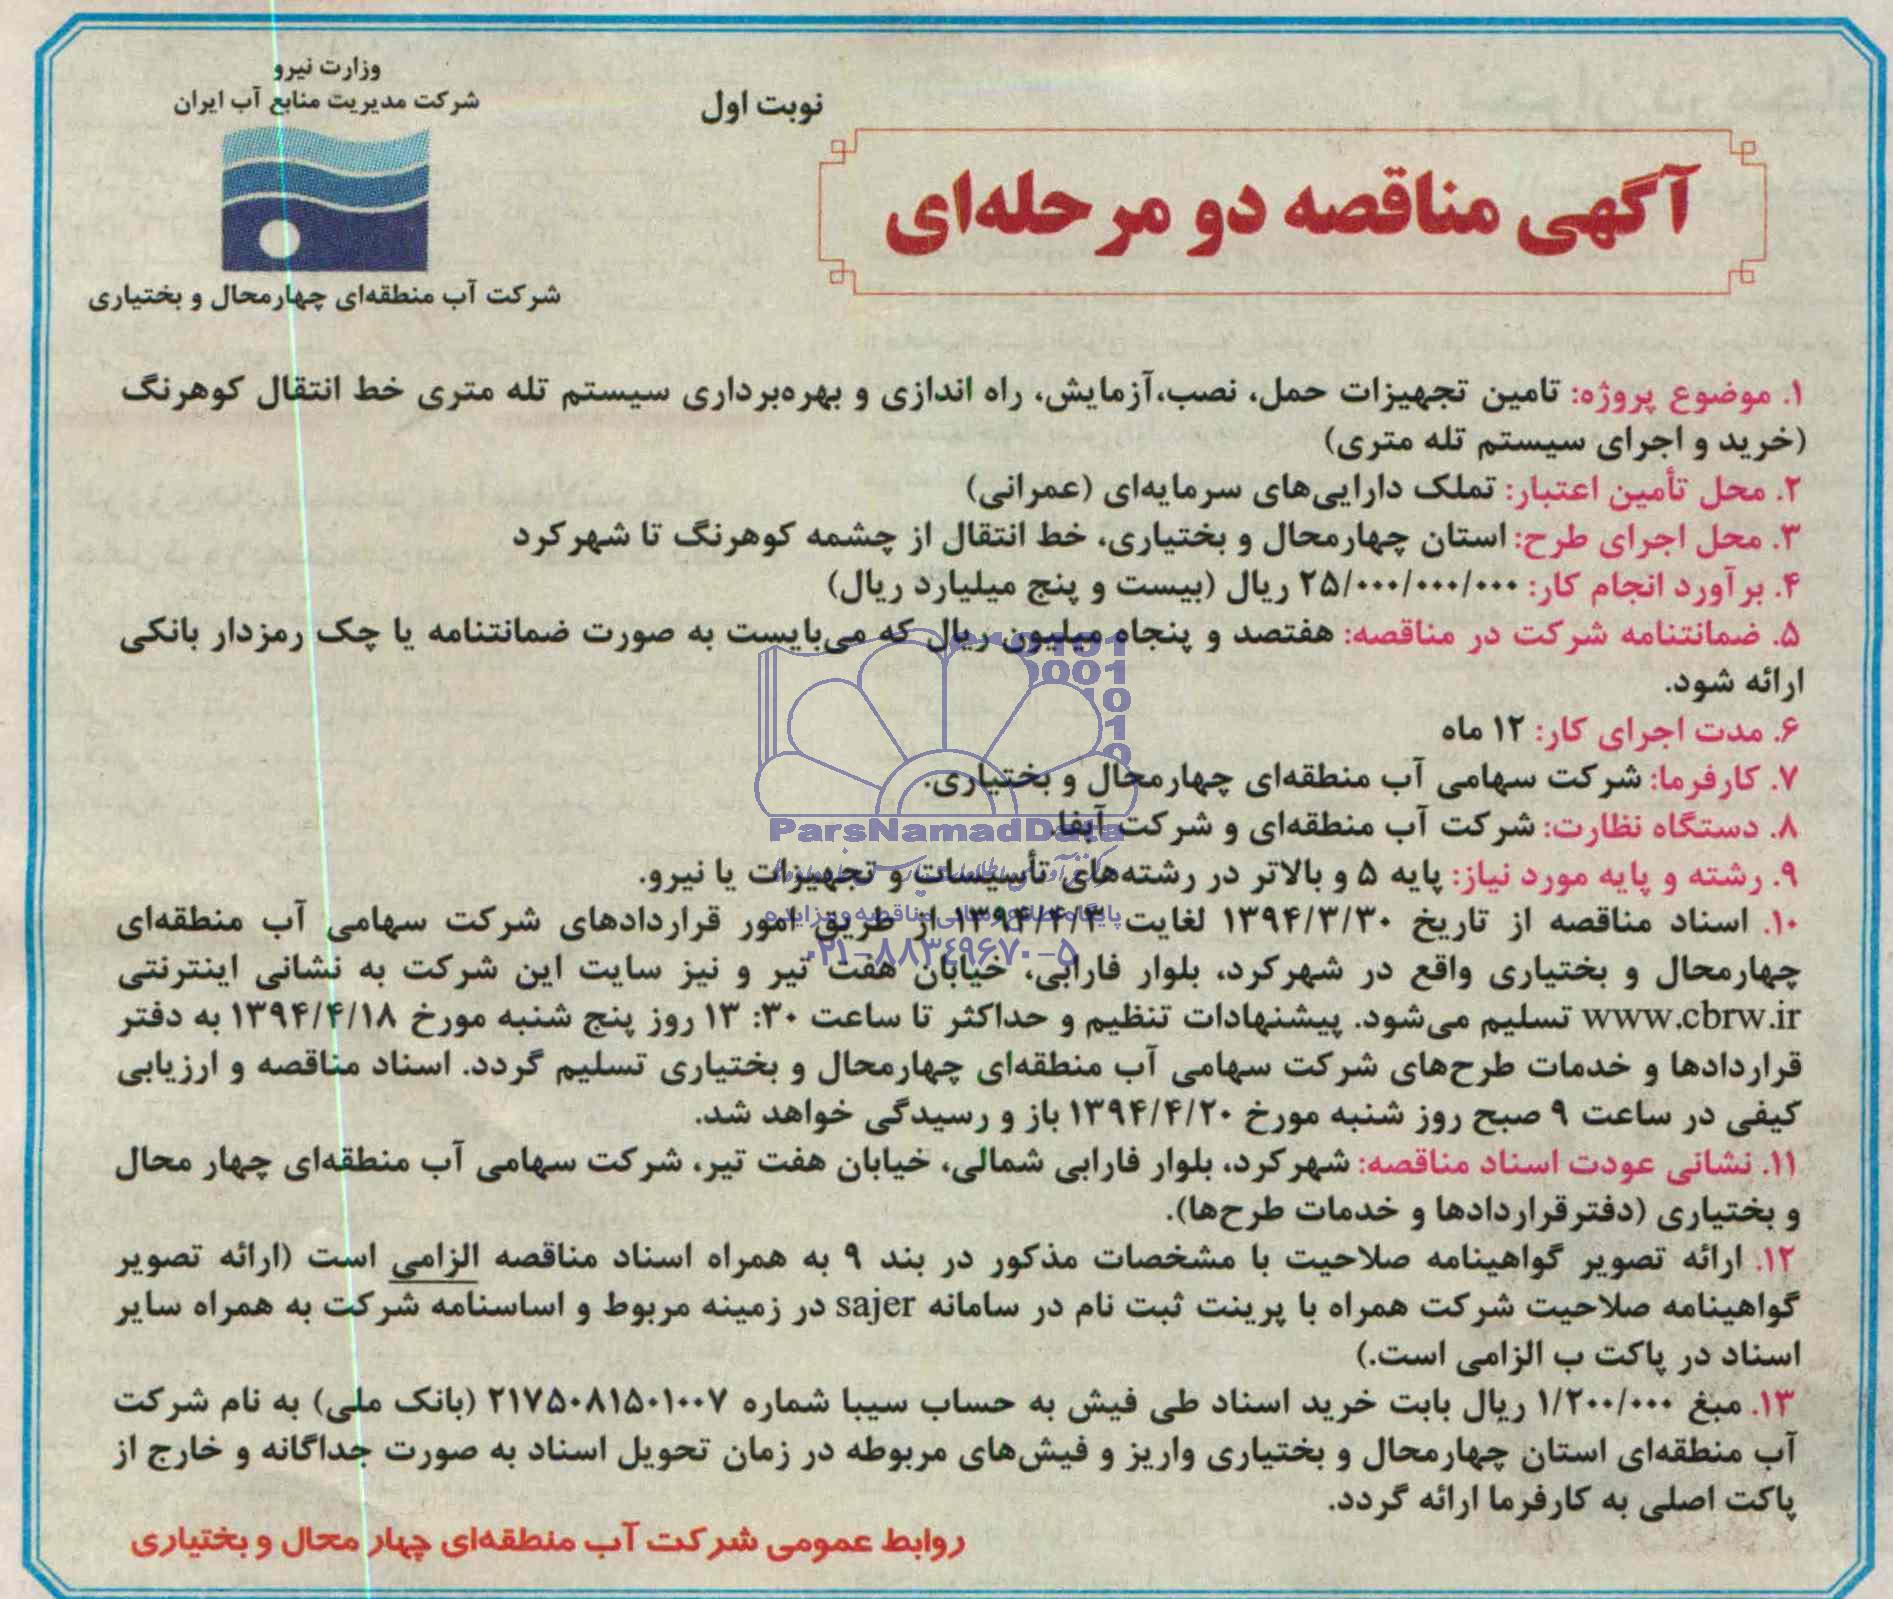 وزارت نیرو
شرکت مدیریت منابع آب ایران
شرکت آب منطقه‌ای چهارمحال و بختیاری
نوبت اول
آگهی مناقصه دو مرحله‌ای
۱. موضوع پروژه: تامین تجهیزات حمل، نصب،آزمایش، راه اندازی و بهره‌برداری سیستم تله متری خط انتقال کوهرنگ
(خرید و اجرای سیستم تله متری)
۲. محل تأمین اعتبار: تملک دارایی‌های سرمایه‌ای (عمرانی)
۳. محل اجرای طرح: استان چهارمحال و بختیاری، خط انتقال از چشمه کوهرنگ تا شهرکرد
۴. برآورد انجام کار: ۲۵/۰۰۰/۰۰۰/۰۰۰ ریال (بیست و پنج میلیارد ریال)
۵. ضمانتنامه شرکت در مناقصه: هفتصد و پنجاه میلیون ریال که می‌بایست به صورت ضمانتنامه یا چک رمزدار بانکی
ارائه شود.
۶. مدت اجرای کار: ۱۲ ماه
۷. کارفرما: شرکت سهامی آب منطقه‌ای چهارمحال و بختیاری.
۸. دستگاه نظارت: شرکت آب منطقه‌ای و شرکت آبفا.
ParsNamadData
۹. رشته و پایه مورد نیاز: پایه ۵ و بالاتر در رشته‌های تأسیسات و تجهیزات یا نیرو.
پایگاه اطلاع رسانی مناقصه و مزایده
۱۰. اسناد مناقصه از تاریخ ۱۳۹۴/۳/۳۰ لغایت ۱۳۹۴/۴/۳ از طریق امور قراردادهای شرکت سهامی آب منطقه‌ای
۰۲۱-۸۸۳۴۹۶۷۰-۵
چهارمحال و بختیاری واقع در شهرکرد، بلوار فارابی، خیابان هفت تیر و نیز سایت این شرکت به نشانی اینترنتی
www.cbrw.ir تسلیم می‌شود. پیشنهادات تنظیم و حداکثر تا ساعت ۳۰: ۱۳ روز پنج شنبه مورخ ۱۳۹۴/۴/۱۸ به دفتر
قراردادها و خدمات طرح‌های شرکت سهامی آب منطقه‌ای چهارمحال و بختیاری تسلیم گردد. اسناد مناقصه و ارزیابی
کیفی در ساعت ۹ صبح روز شنبه مورخ ۱۳۹۴/۴/۲۰ باز و رسیدگی خواهد شد.
۱۱. نشانی عودت اسناد مناقصه: شهرکرد، بلوار فارابی شمالی، خیابان هفت تیر، شرکت سهامی آب منطقه‌ای چهار محال
و بختیاری (دفترقراردادها و خدمات طرح‌ها).
۱۲. ارائه تصویر گواهینامه صلاحیت با مشخصات مذکور در بند ۹ به همراه اسناد مناقصه الزامی است (ارائه تصویر
گواهینامه صلاحیت شرکت همراه با پرینت ثبت نام در سامانه sajer در زمینه مربوط و اساسنامه شرکت به همراه سایر
اسناد در پاکت ب الزامی است.)
۱۳. مبغ ۱/۲۰۰/۰۰۰ ریال بابت خرید اسناد طی فیش به حساب سیبا شماره ۲۱۷۵۰۸۱۵۰۱۰۰۷ (بانک ملی) به نام شرکت
آب منطقه‌ای استان چهارمحال و بختیاری واریز و فیش‌های مربوطه در زمان تحویل اسناد به صورت جداگانه و خارج از
پاکت اصلی به کارفرما ارائه گردد.
روابط عمومی شرکت آب منطقه‌ای چهار محال و بختیاری